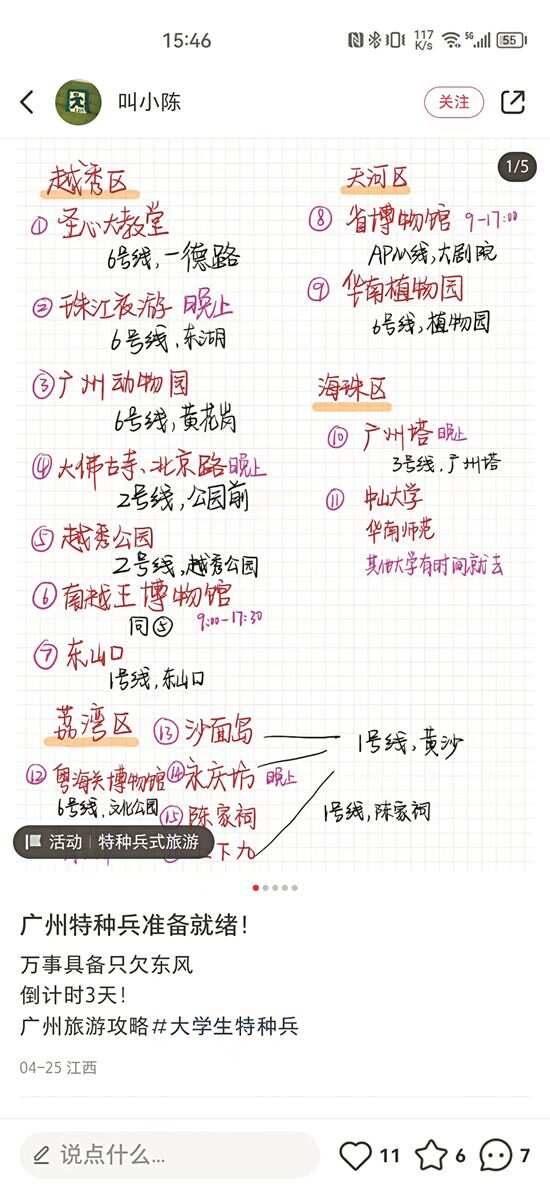 15:46
117
K/s
5G
55
叫小陈
关注
1/5
越秀区
① 圣心大教堂
6号线,一德路
② 珠江夜游 晚上
6号线,东湖
③ 广州动物园
6号线,黄花岗
④ 大佛古寺、北京路 晚上
2号线,公园前
⑤ 越秀公园
2号线,越秀公园
⑥ 南越王博物馆
同⑤ 9:00-17:30
⑦ 东山口
1号线,东山口
天河区
⑧ 省博物馆 9-17:00
APM线,大剧院
⑨ 华南植物园
6号线,植物园
海珠区
⑩ 广州塔 晚上
3号线.广州塔
⑪ 中山大学
华南师范
其他大学有时间就去
荔湾区
⑫ 粤海关博物馆
6号线,文化公园
⑬ 沙面岛
⑭ 永庆坊 晚上
⑮ 陈家祠
下九
1号线,黄沙
1号线,陈家祠
活动 | 特种兵式旅游
广州特种兵准备就绪!
万事具备只欠东风
倒计时3天!
广州旅游攻略#大学生特种兵
04-25 江西
说点什么...
11
6
7